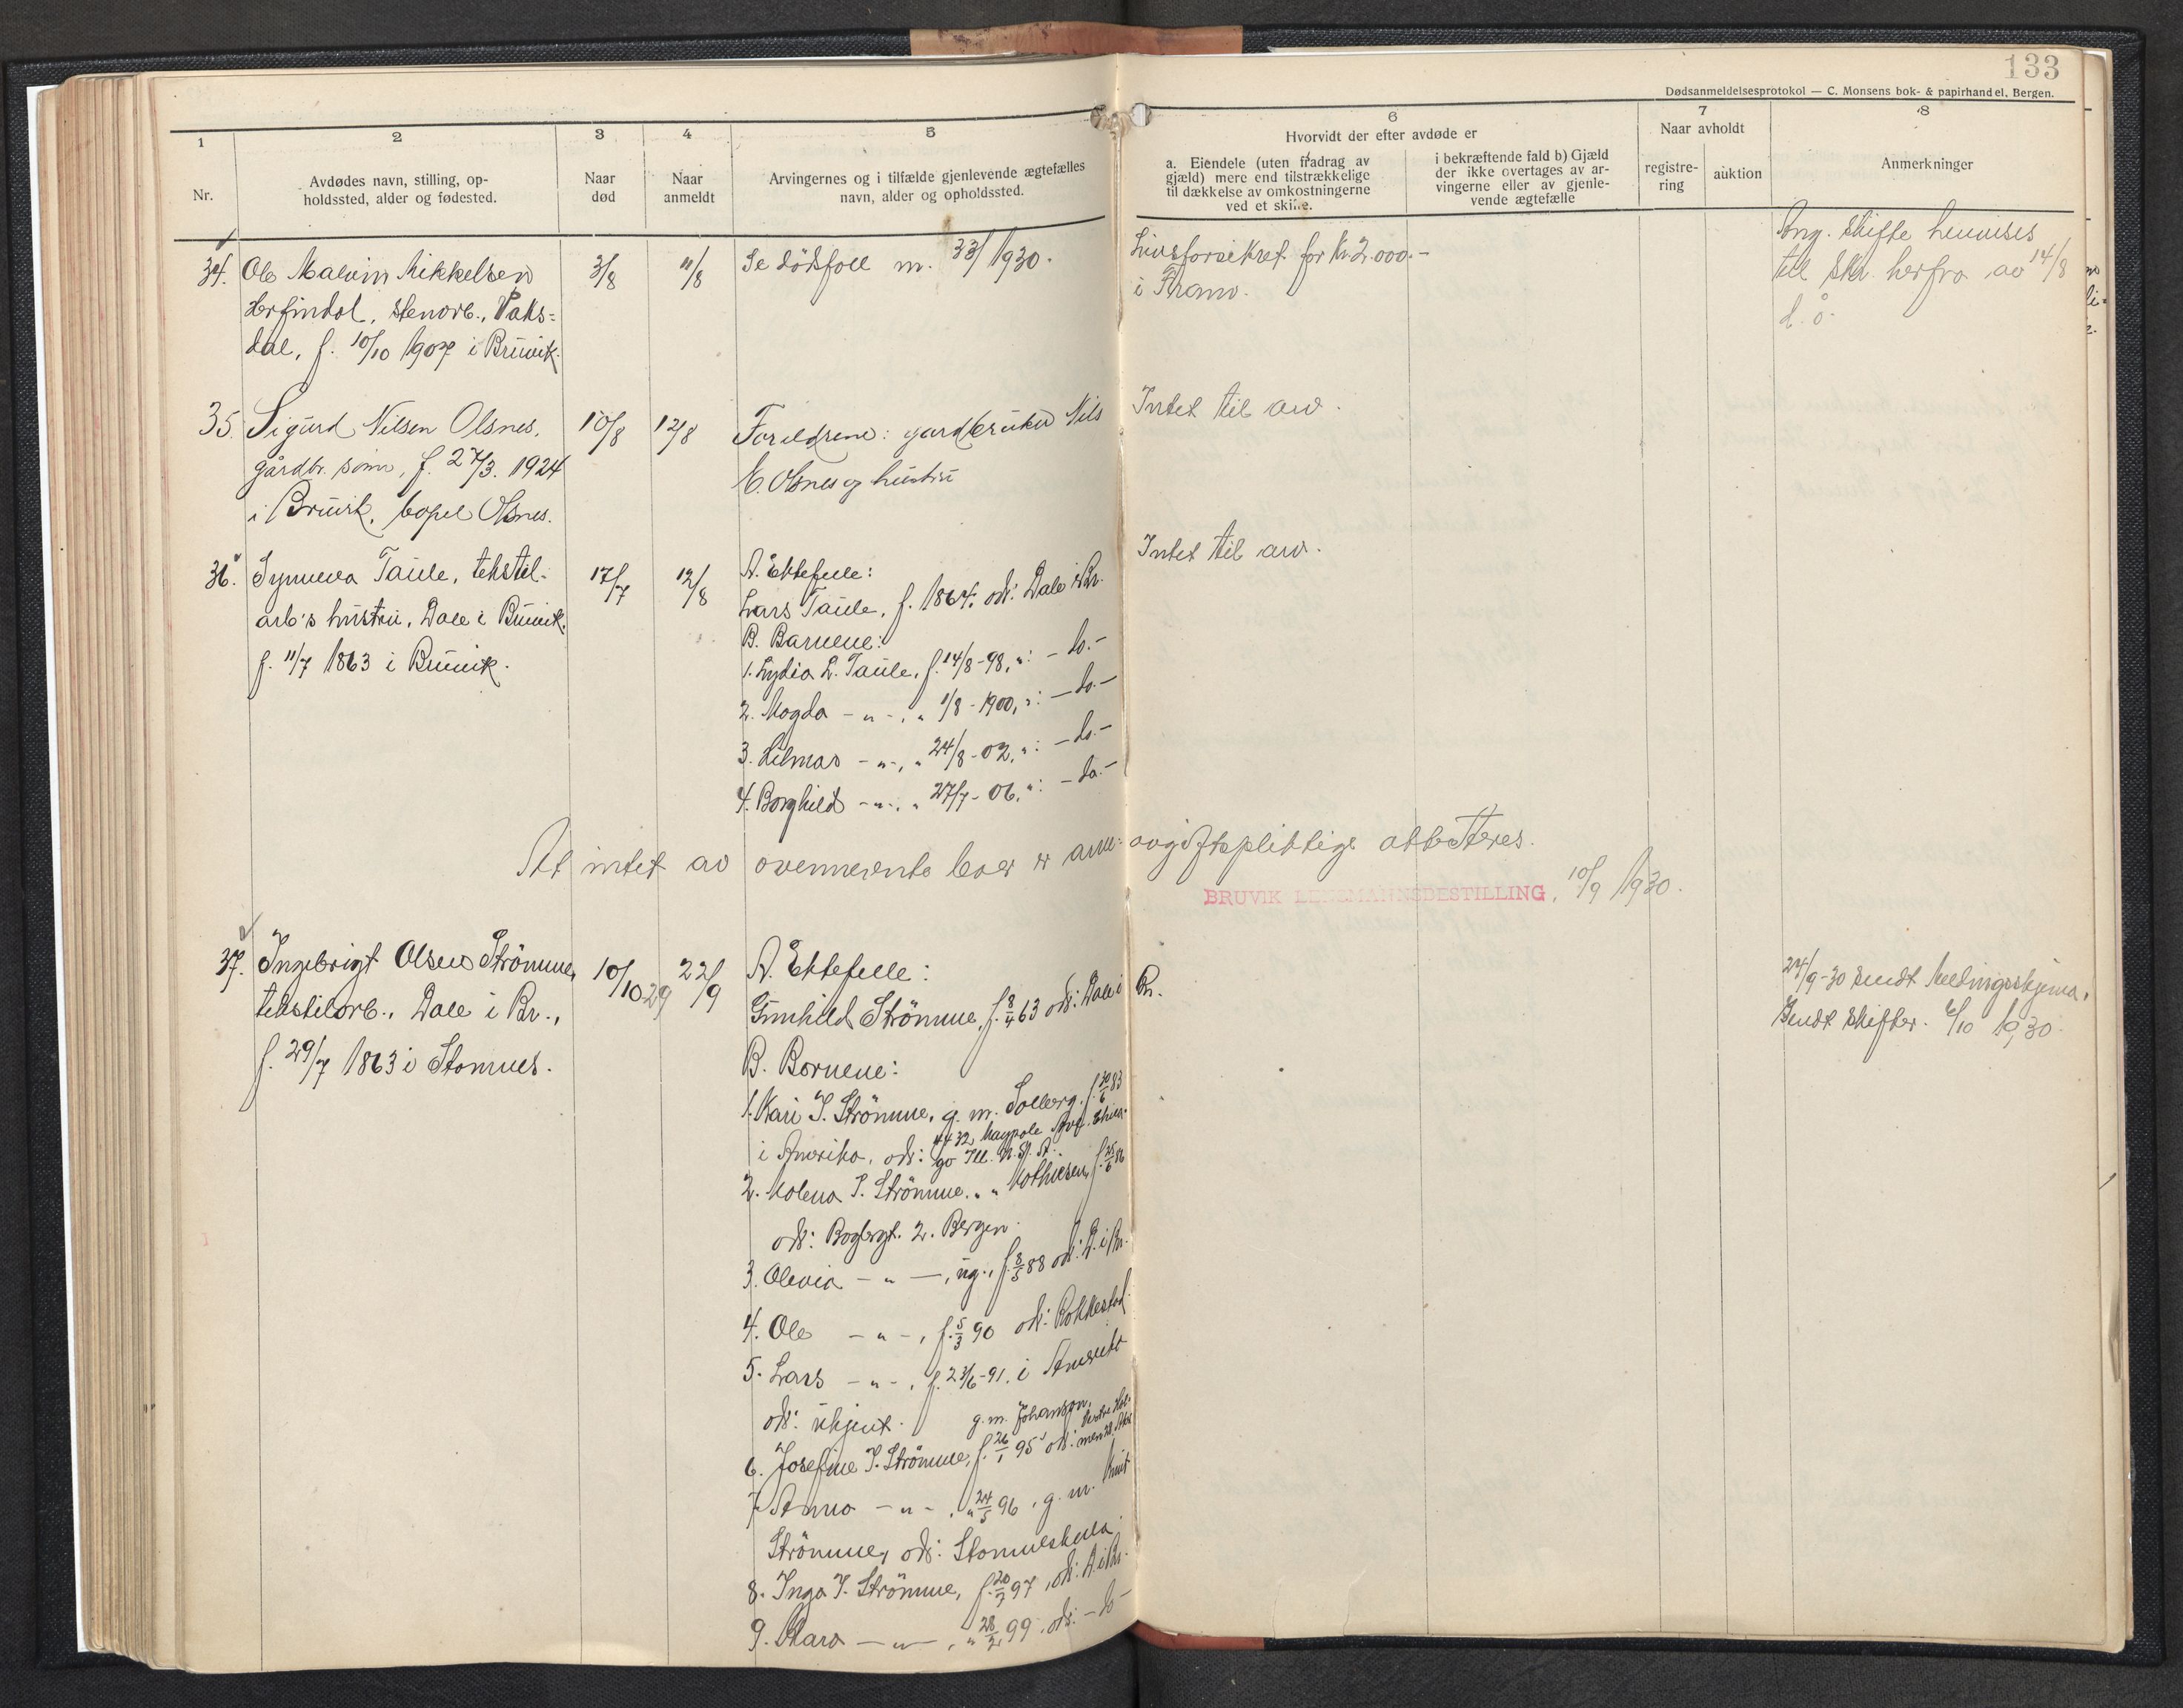 133
Dødsanmeldelsesprotokol — C. Monsens bok- & papirhandel, Bergen.
1
2
3
4
5
6
7
8
Nr.
Avdødes navn, stilling, op-
holdssted, alder og fødested.
Naar
død
Naar
anmeldt
Arvingernes og i tilfælde gjenlevende ægtefælles
navn, alder og opholdssted.
Hvorvidt der efter avdøde er
a. Eiendele (uten fradrag av
gjæld) mere end tilstrækkelige
til dækkelse av omkostningerne
ved et skifte.
i bekræftende fald b) Gjæld
der ikke overtages av ar-
vingerne eller av gjenle-
vende ægtefælle
Naar avholdt
registre-
ring
auktion
Anmerkninger
34. Ole Malvin Mikkelsen 3/8 11/8 Se dödsfall nr. 33/1930. Livsforsikret for Kr 2.000.- Ang. skifte henvises
Herfindal, stenarb., Vaks= i Fram. til skr. herfra av 14/8
dal, f. 10/10 1907 i Bruvik. d. å.
35. Sigurd Nilsen Olsnes, 10/8 12/8 Foreldrene: gardbruker Nils Intet til arv.
gårdbr. sönn, f. 27/3. 1924 Olsnes og hustru
i Bruvik, bopel Olsnes.
36. Synneva Taule, tekstil- 17/7 12/8 A. Ektefelle: Intet til arv.
arb's hustru, Dale i Bruvik. Lars Taule, f. 1864. ads: Dale i Br.
f. 11/7 1863 i Bruvik. B. Barnene:
1. Lydia L. Taule, f. 14/8-98, ": - do.-
2. Magda - " -, " 1/8-1900, ": - do.-
3. Hilmar - " -, " 24/8-02, ": - do.-
4. Borghild - " -, " 27/7-06, ": - do.-
At intet av ovennevnte boer er arve- avgiftspliktige attesteres.
BRUVIK LENSMANNSBESTILLING, 10/9 1930.
37. Ingebrigt Olsen Strömme, 10/10 29 22/9 A. Ektefelle: 24/9-30 sendt meldingsskjema.
tekstilarb., Dale i Br., Gunhild Strömme, f. 8/4 63 ads: Dale i Br. Sendt skifter. 6/10 1930.
f. 29/7 1863 i Stamnes. B. Barnene:
1. Kari I. Strömme, g. m. Solberg, f. 30/6 83
i Amerika, ads: 4432, Maypole Ave. Chica-
go Ill. U. S. A.
2. Malena I. Strömme, " " Mathiesen, f. 25/6 86
ads: 2. Bergen.
3. Olevia - " -, ug., f. 8/5 88 ads: D. i Br.
4. Ole - " -, f. 5/3 90 ads: Rakkestad
5. Lars - " -, f. 23/6-91. i Amerika
ads: ukjent.
g. m. Johanson,
6. Josefine I. Strömme, f. 26/1 95 ads:
7. Anna - " -, " 24/5 96, g. m. Knut
Strömme, ads: Stamneshella
8. Inga I. Strömme, f. 20/7 97, ads: D. i Br.
9. Klara - " -, " 28/2 99, ads: - do -